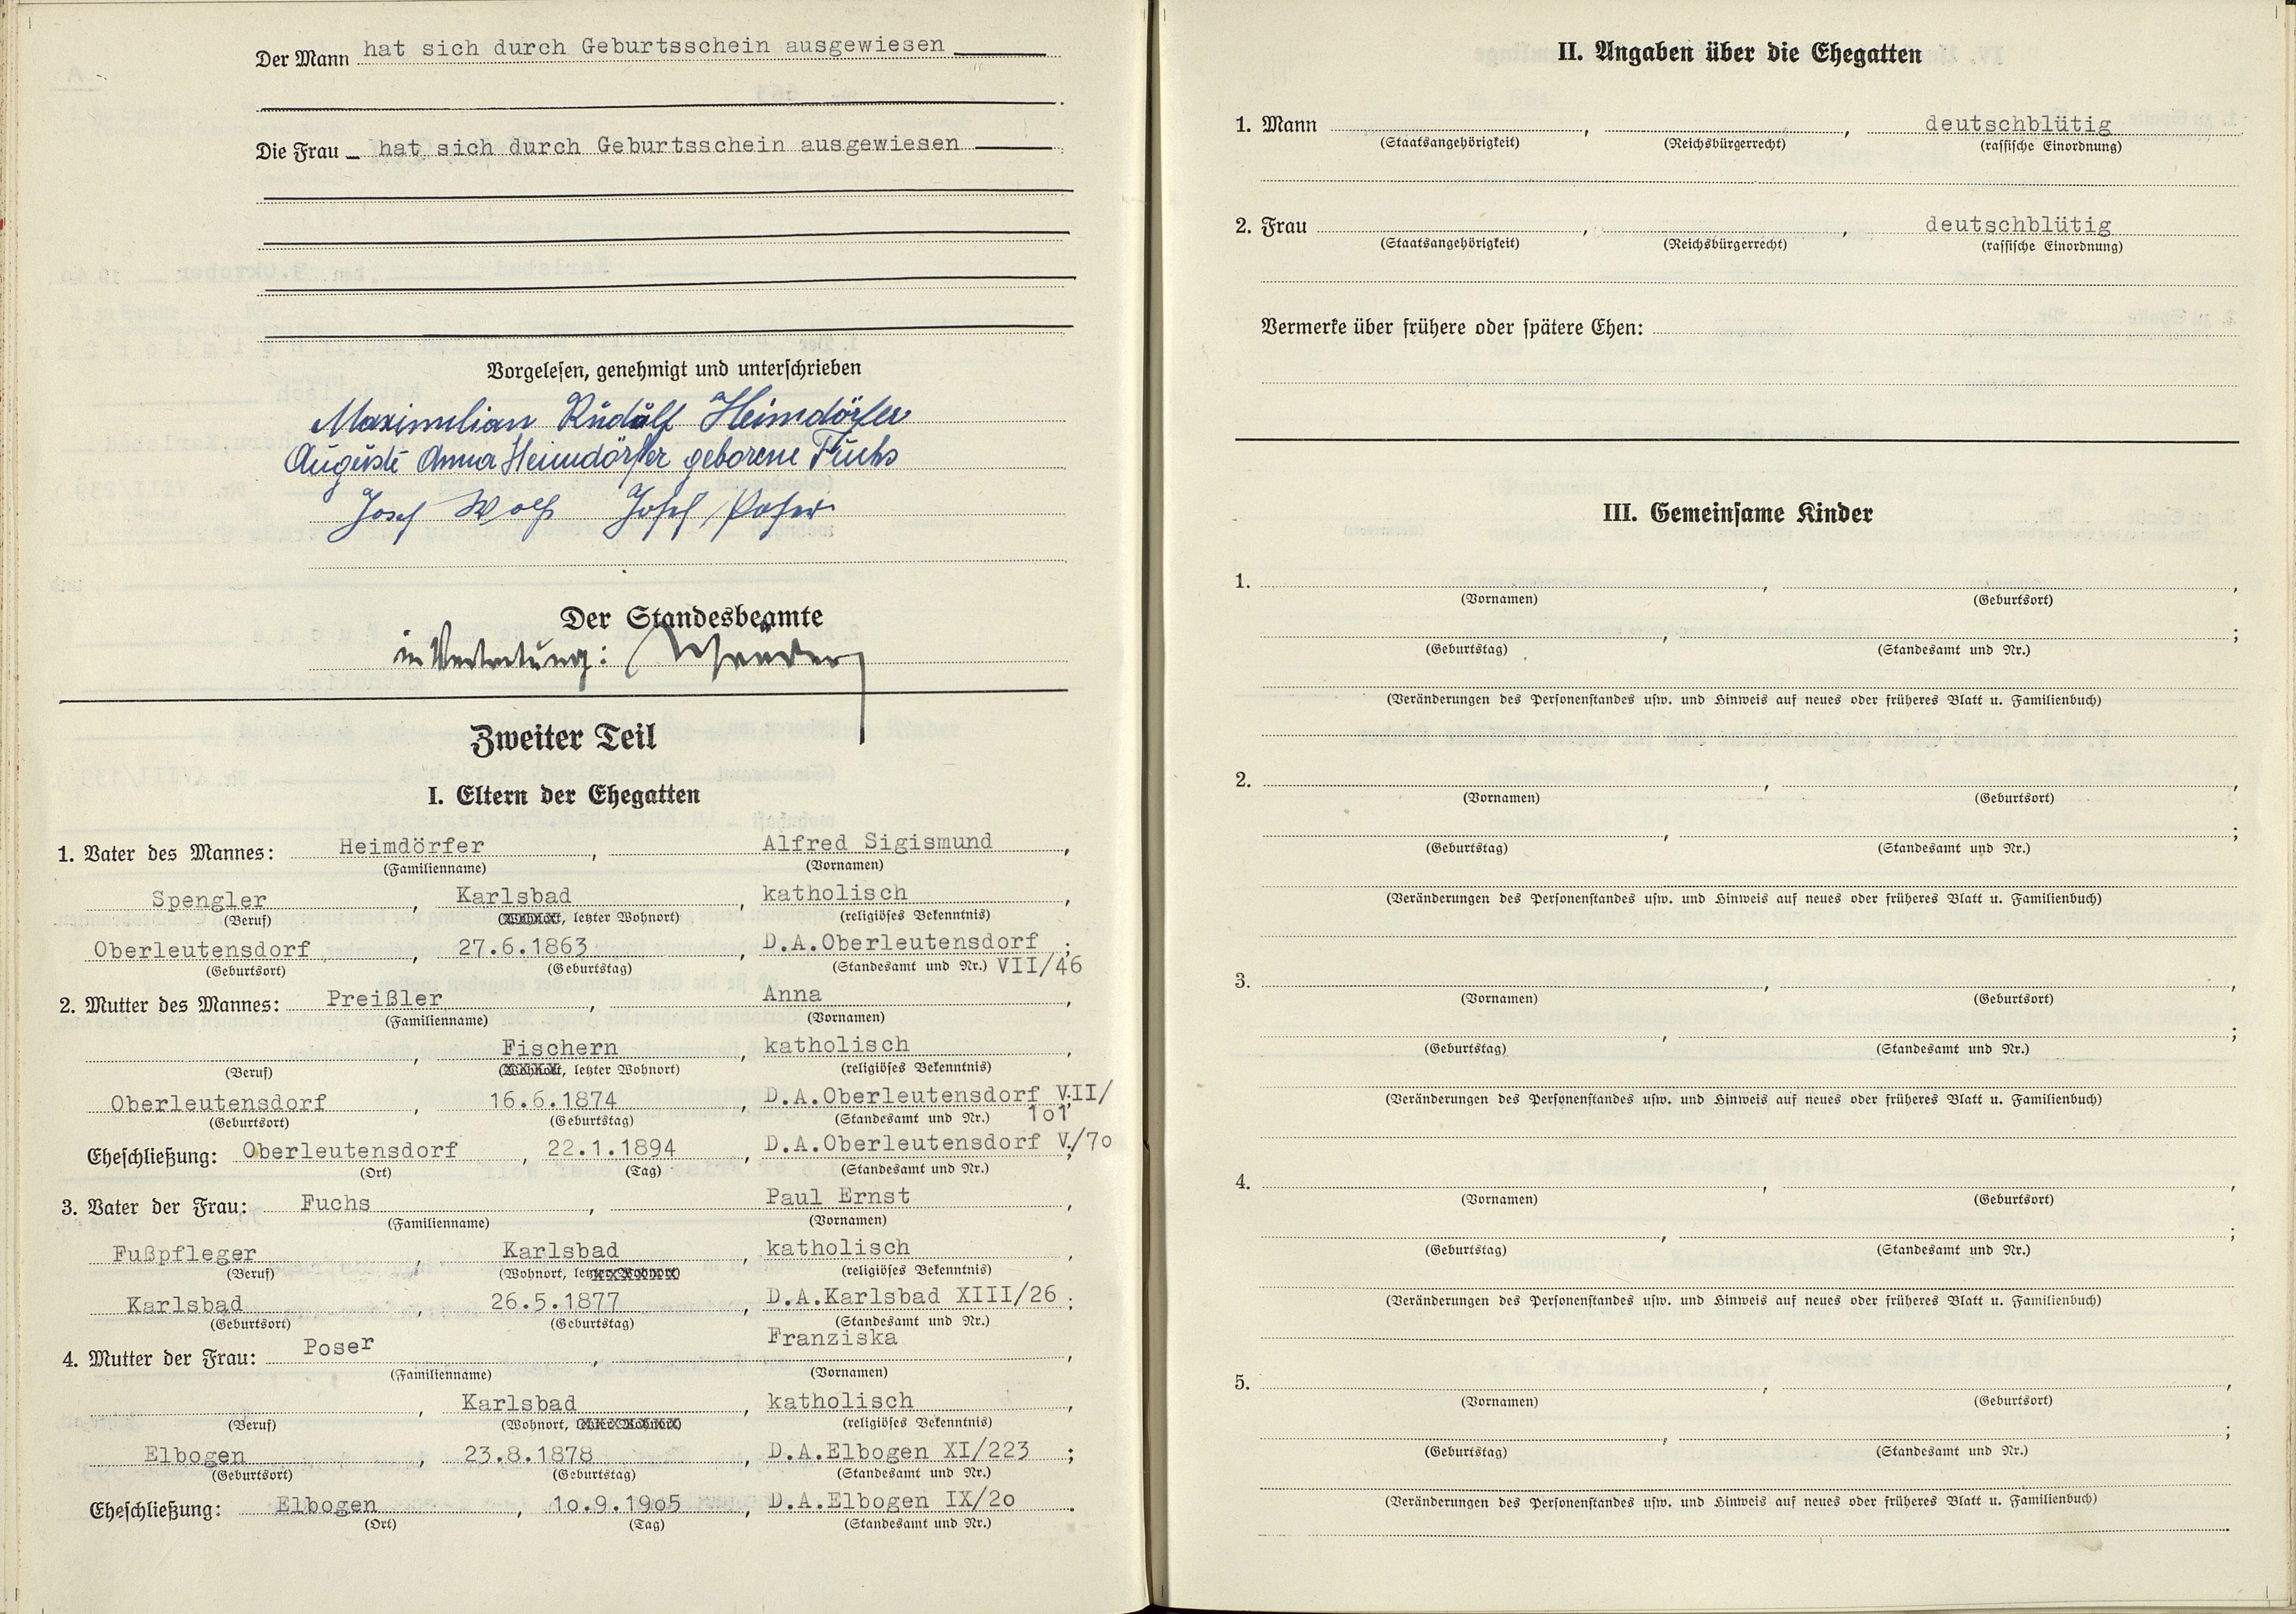 Der Mann hat sich durch Geburtsschein ausgewiesen
Die Frau hat sich durch Geburtsschein ausgewiesen
Vorgelesen, genehmigt und unterschrieben
Maximilian Rudolf Heimdörfer
Auguste Anna Heimdörfer geborene Fuchs
Josef Wolf Josef Poser
Der Standesbeamte
in Vertretung:
Zweiter Teil
I. Eltern der Ehegatten
1. Vater des Mannes: Heimdörfer, Alfred Sigismund,
(Familienname) (Vornamen)
Spengler, Karlsbad, katholisch,
(Beruf) (Wohnort, letzter Wohnort) (religiöses Bekenntnis)
Oberleutensdorf, 27.6.1863, D.A.Oberleutensdorf;
(Geburtsort) (Geburtstag) (Standesamt und Nr.) VII/46
2. Mutter des Mannes: Preißler, Anna,
(Familienname) (Vornamen)
, Fischern, katholisch,
(Beruf) (Wohnort, letzter Wohnort) (religiöses Bekenntnis)
Oberleutensdorf, 16.6.1874, D.A.Oberleutensdorf VII/
(Geburtsort) (Geburtstag) (Standesamt und Nr.) 1o1;
Eheschließung: Oberleutensdorf, 22.1.1894, D.A.Oberleutensdorf V/7o;
(Ort) (Tag) (Standesamt und Nr.)
3. Vater der Frau: Fuchs, Paul Ernst,
(Familienname) (Vornamen)
Fußpfleger, Karlsbad, katholisch,
(Beruf) (Wohnort, letzter Wohnort) (religiöses Bekenntnis)
Karlsbad, 26.5.1877, D.A.Karlsbad XIII/26;
(Geburtsort) (Geburtstag) (Standesamt und Nr.)
4. Mutter der Frau: Poser, Franziska,
(Familienname) (Vornamen)
, Karlsbad, katholisch,
(Beruf) (Wohnort, letzter Wohnort) (religiöses Bekenntnis)
Elbogen, 23.8.1878, D.A.Elbogen XI/223;
(Geburtsort) (Geburtstag) (Standesamt und Nr.)
Eheschließung: Elbogen, 1o.9.19o5, D.A.Elbogen IX/2o.
(Ort) (Tag) (Standesamt und Nr.)
II. Angaben über die Ehegatten
1. Mann , , deutschblütig
(Staatsangehörigkeit) (Reichsbürgerrecht) (rassische Einordnung)
2. Frau , , deutschblütig
(Staatsangehörigkeit) (Reichsbürgerrecht) (rassische Einordnung)
Vermerke über frühere oder spätere Ehen:
III. Gemeinsame Kinder
1. , ,
(Vornamen) (Geburtsort)
, ;
(Geburtstag) (Standesamt und Nr.)
(Veränderungen des Personenstandes usw. und Hinweis auf neues oder früheres Blatt u. Familienbuch)
2. , ,
(Vornamen) (Geburtsort)
, ;
(Geburtstag) (Standesamt und Nr.)
(Veränderungen des Personenstandes usw. und Hinweis auf neues oder früheres Blatt u. Familienbuch)
3. , ,
(Vornamen) (Geburtsort)
, ;
(Geburtstag) (Standesamt und Nr.)
(Veränderungen des Personenstandes usw. und Hinweis auf neues oder früheres Blatt u. Familienbuch)
4. , ,
(Vornamen) (Geburtsort)
, ;
(Geburtstag) (Standesamt und Nr.)
(Veränderungen des Personenstandes usw. und Hinweis auf neues oder früheres Blatt u. Familienbuch)
5. , ,
(Vornamen) (Geburtsort)
, ;
(Geburtstag) (Standesamt und Nr.)
(Veränderungen des Personenstandes usw. und Hinweis auf neues oder früheres Blatt u. Familienbuch)